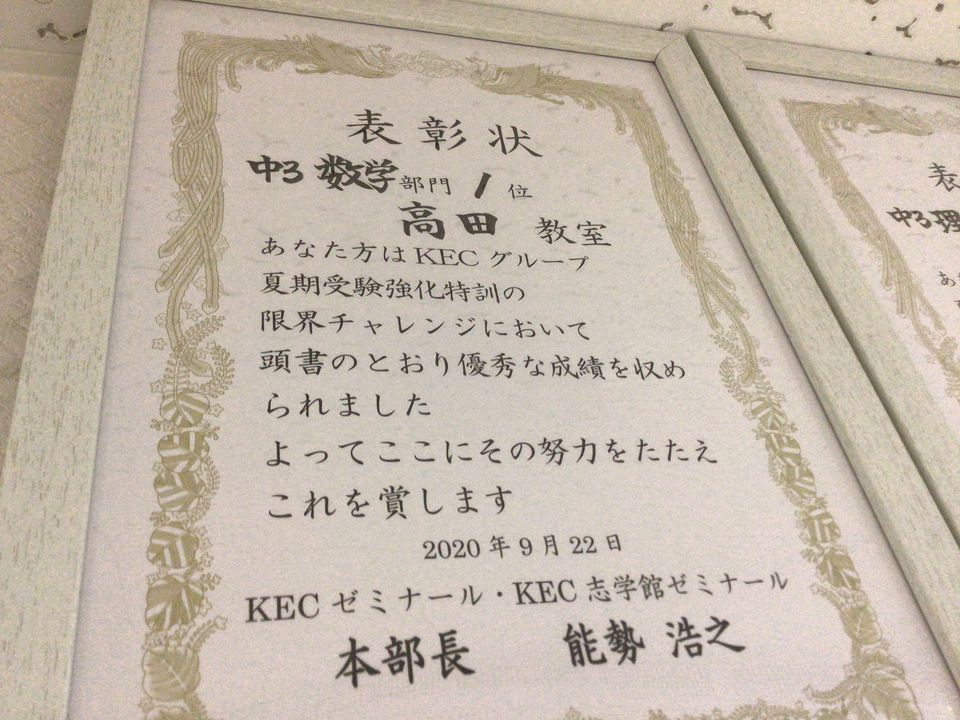 表彰状
中3 数学部門 1位
高田 教室
あなた方はKECグループ
夏期受験強化特訓の
限界チャレンジにおいて
頭書のとおり優秀な成績を収め
られました
よってここにその努力をたたえ
これを賞します
2020年9月22日
KECゼミナール・KEC志学館ゼミナール
本部長 能勢 浩之
表
中3理
あ